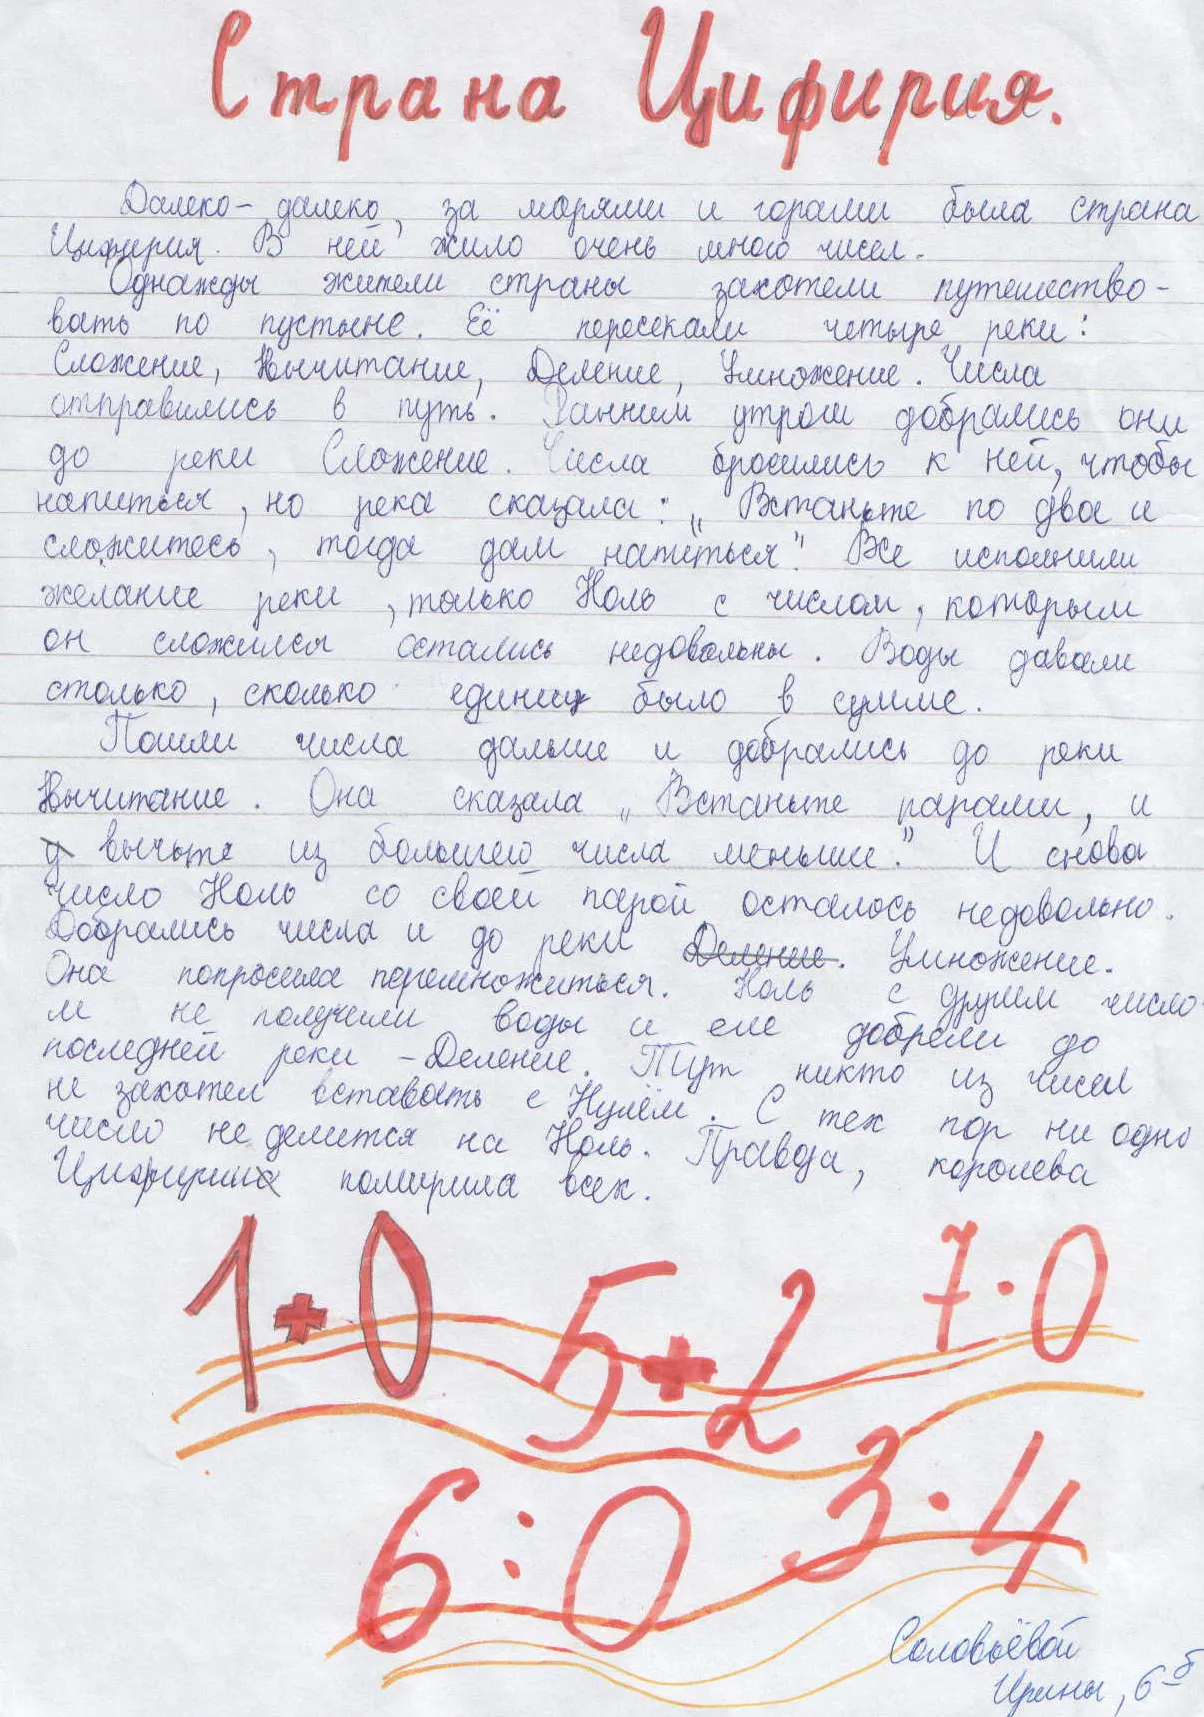 Страна Цифирия.
Далеко-далеко, за морями и горами была страна
Цифирия. В ней жило очень много чисел.
Однажды жители страны захотели путешество-
вать по пустыне. Её пересекали четыре реки:
Сложение, Вычитание, Деление, Умножение. Числа
отправились в путь. Ранним утром добрались они
до реки Сложение. Числа бросились к ней, чтобы
напиться, но река сказала: „Встаньте по два и
сложитесь, тогда дам напиться." Все исполнили
желание реки, только Ноль с числом, которым
он сложился остались недовольны. Воды давали
столько, сколько единиц было в сумме.
Пошли числа дальше и добрались до реки
Вычитание. Она сказала „Встаньте парами, и
вычьте из большего числа меньшее." И снова
число Ноль со своей парой осталось недовольно.
Добрались числа и до реки Деление. Умножение.
Она попросила перемножиться. Ноль с другим число
м не получили воды и еле добрели до
последней реки - Деление. Тут никто из чисел
не захотел вставать с Нулём. С тех пор ни одно
число не делится на Ноль. Правда, королева
Цифирии помирила всех.
1+0 5+2 7·0
6:0 3·4
Соловьёвой
Ирины, 6б